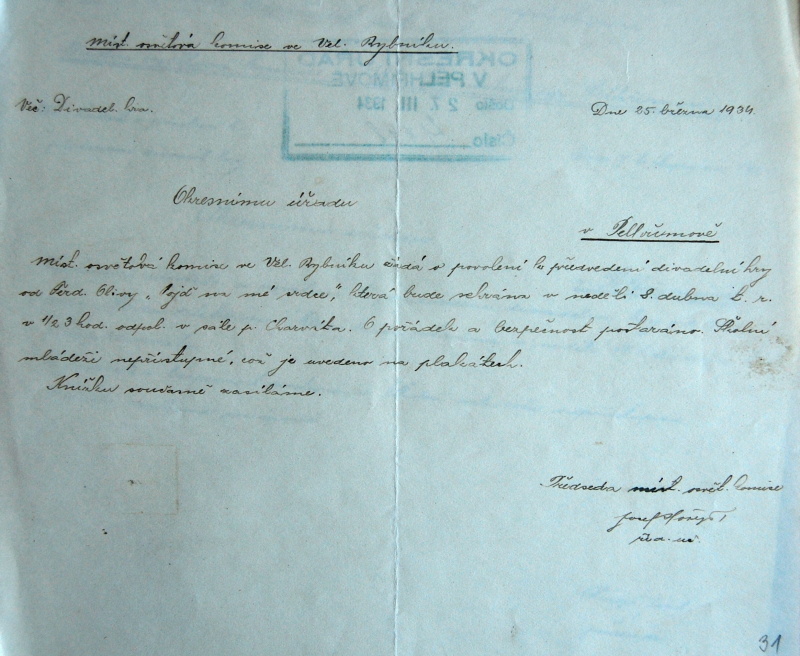 Míst. osvětová komise ve Vel. Rybníku.
OKRESNÍ ÚŘAD
V PELHŘIMOVĚ
Došlo 27. III. 1934
Číslo
Věc: Divadel. hra.
Dne 25. března 1934.
Okresnímu úřadu
v Pelhřimově
Míst. osvětová komise ve Vel. Rybníku žádá o povolení k předvedení divadelní hry
od Ferd. Olivy „Pojď na mé srdce", která bude sehrána v neděli 8. dubna t. r.
v 1/2 3 hod. odpol. v sále p. Charváta. O pořádek a bezpečnost postaráno. Školní
mládeži nepřístupné, což je uvedeno na plakátech.
Knížku současně zasíláme.
Předseda míst. osvět. komise
Josef
říd. uč.
31